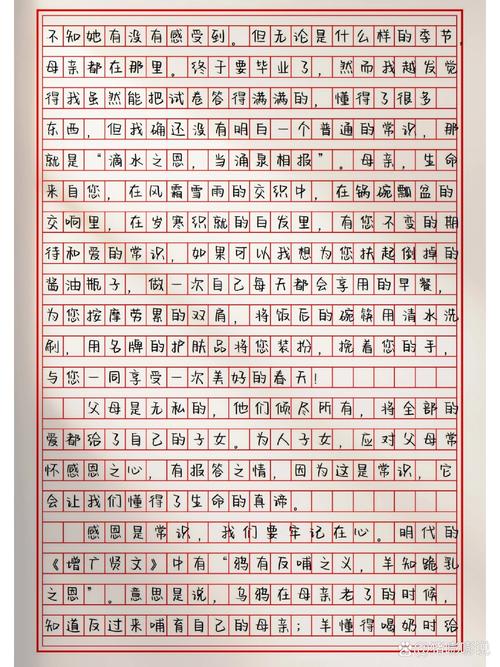 不知她有没有感受到。但无论是什么样的季节，
母亲都在那里。终于要毕业了，然而我越发觉
得我虽然能把试卷答得满满的，懂得了很多
东西，但我确还没有明白一个普通的常识，那
就是“滴水之恩，当涌泉相报”。母亲，生命
来自您，在风霜雪雨的交织中，在锅碗瓢盆的
交响里，在岁寒织就的白发里，有您不变的期
待和爱的常识，如果可以我想为您扶起倒掉的
酱油瓶子，做一次自己每天都会享用的早餐，
为您按摩劳累的双肩，将饭后的碗筷用清水洗
刷，用名牌的护肤品将您装扮，挽着您的手，
与您一同享受一次美好的春天！
父母是无私的，他们倾尽所有，将全部的
爱都给了自己的子女。为人子女，应对父母常
怀感恩之心，有报答之情，因为这是常识，它
会让我们懂得了生命的真谛。
感恩是常识，我们要牢记在心。明代的
《增广贤文》中有“鸦有反哺之义，羊知跪乳
之恩”。意思是说，乌鸦在母亲老了的时候，
知道反过来哺有自己的母亲；羊懂得喝奶时给